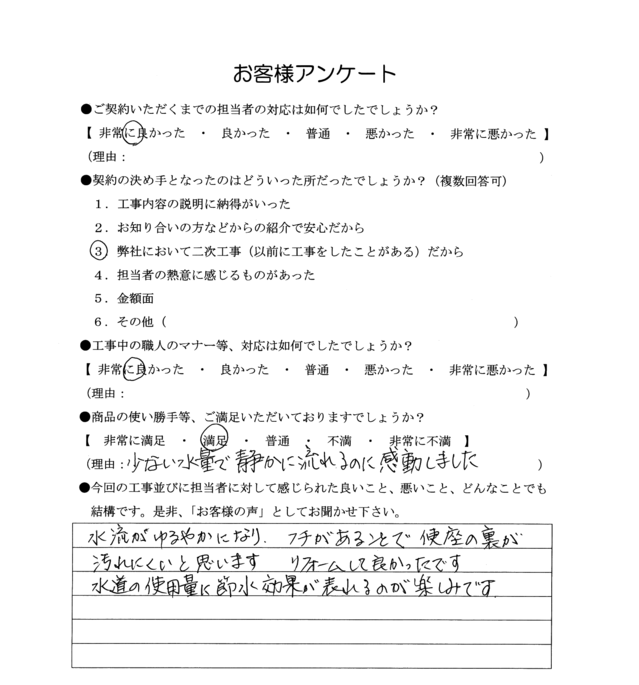 お客様アンケート
●ご契約いただくまでの担当者の対応は如何でしたでしょうか？
【 非常に良かった ・ 良かった ・ 普通 ・ 悪かった ・ 非常に悪かった 】
（理由： ）
●契約の決め手となったのはどういった所だったでしょうか？（複数回答可）
１．工事内容の説明に納得がいった
２．お知り合いの方などからの紹介で安心だから
３ 弊社において二次工事（以前に工事をしたことがある）だから
４．担当者の熱意に感じるものがあった
５．金額面
６．その他（ ）
●工事中の職人のマナー等、対応は如何でしたでしょうか？
【 非常に良かった ・ 良かった ・ 普通 ・ 悪かった ・ 非常に悪かった 】
（理由： ）
●商品の使い勝手等、ご満足いただいておりますでしょうか？
【 非常に満足 ・ 満足 ・ 普通 ・ 不満 ・ 非常に不満 】
（理由：少ない水量で静かに流れるのに感動しました ）
●今回の工事並びに担当者に対して感じられた良いこと、悪いこと、どんなことでも
結構です。是非、「お客様の声」としてお聞かせ下さい。
水流がゆるやかになり、フチがあることで便座の裏が
汚れにくいと思います リフォームして良かったです
水道の使用量に節水効果が表れるのが楽しみです